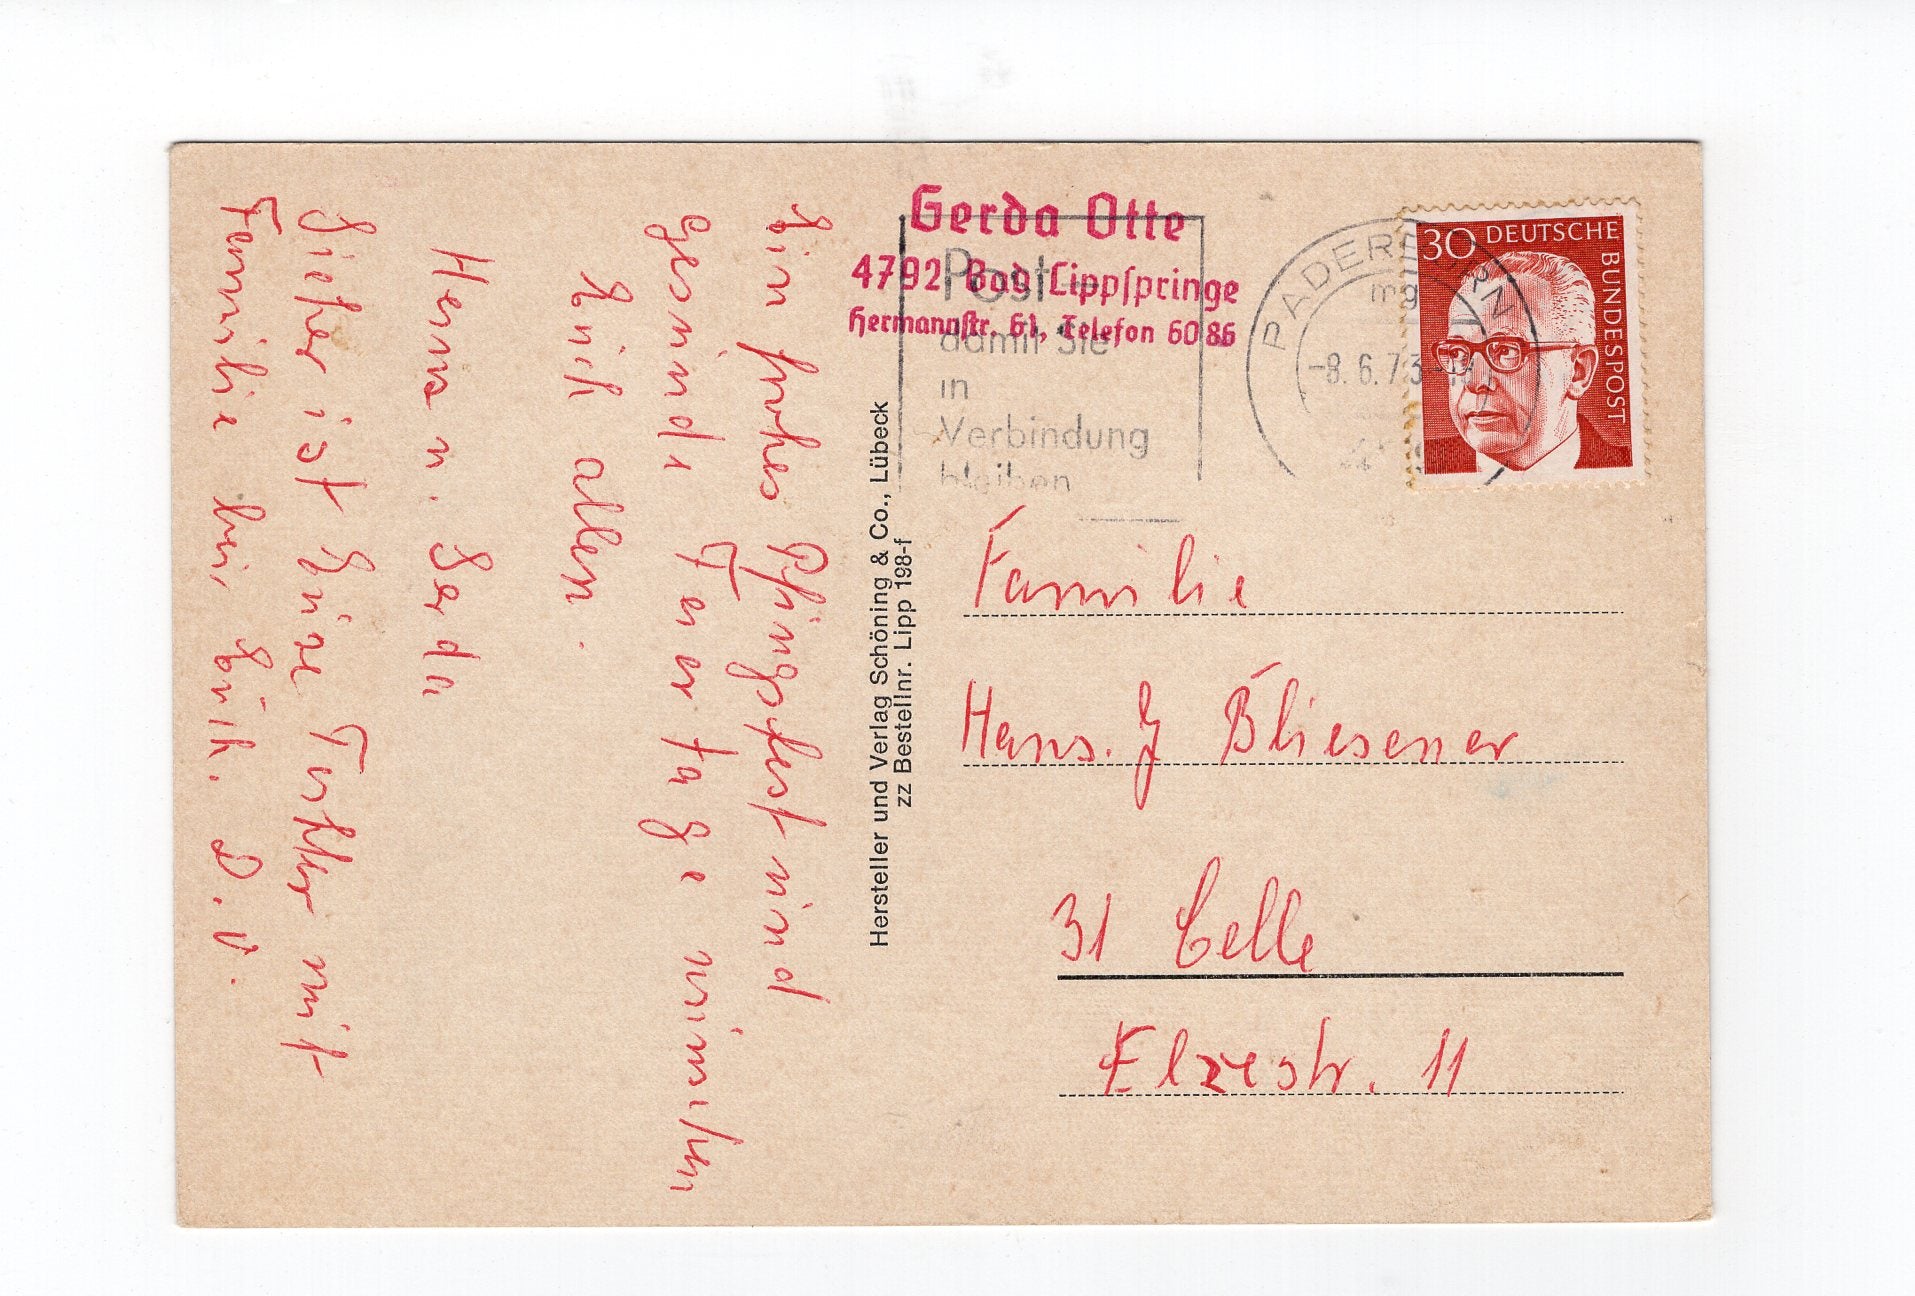 Gerda Otte
4792 Bad Lippspringe
Hermannstr. 61, Telefon 60 86
Post –
damit Sie
in
Verbindung
bleiben
PADERBORN
mg
-8.6.73
30 DEUTSCHE
BUNDESPOST
Ein frohes Pfingstfest und
gesunde Feiertage wünschen
Euch allen.
Herm u. Gerda
Sicher ist Eure Tochter mit
Familie bei Euch. D. O.
Hersteller und Verlag Schöning & Co., Lübeck
zz Bestellnr. Lipp 198-f
Familie
Hans. J Bliesener
31 Celle
Elzestr. 11